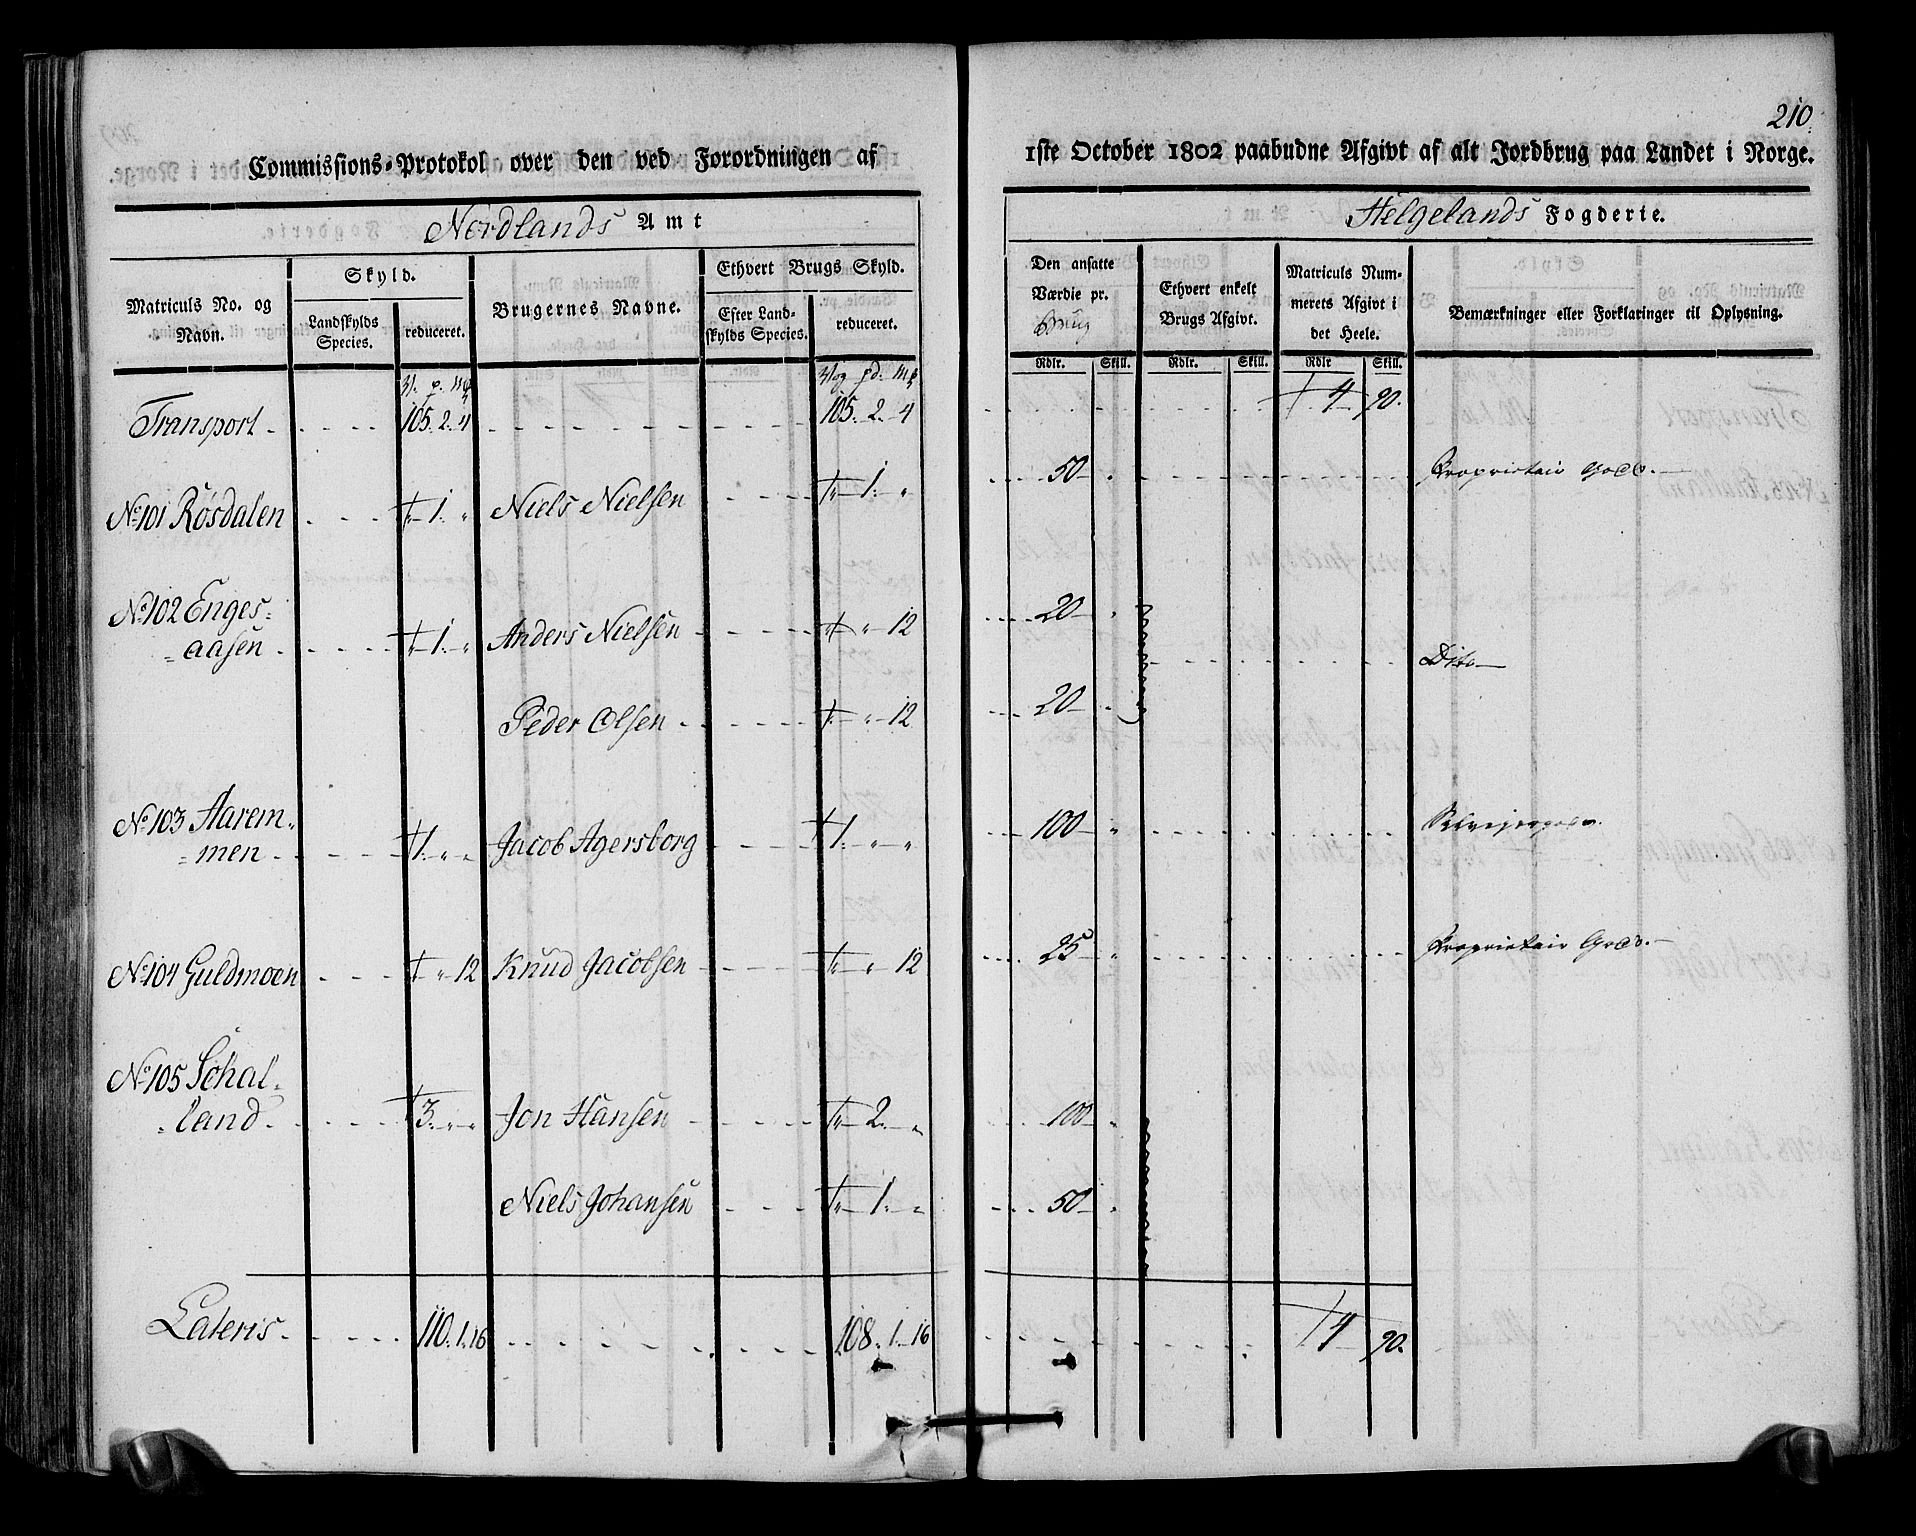 210.
Commissions-Protokol over den ved Forordningen af
1ste October 1802 paabudne Afgivt af alt Jordbrug paa Landet i Norge.
Nordlands Amt
Helgelands Fogderie.
Matriculs No. og Navn.
Skyld.
Landskylds Species.
reduceret.
Brugernes Navne.
Ethvert Brugs Skyld.
Efter Landskylds Species.
reduceret.
Den ansatte Værdie pr. Brug
Ethvert enkelt Brugs Afgivt.
Matriculs Nummerets Afgivt i det Heele.
Bemærkninger eller Forklaringer til Oplysning.
Rdlr. Skill. Rdlr. Skill. Rdlr Skill.
Transport 105. 2. 4 105. 2. 4 4 90.
No 101 Røsdalen 1. " Niels Nielsen 1. " 50 " Proprietair Gods.
No 102 Enges=
=aasen 1. " Anders Nielsen " 12 20 " Dito
Peder Olsen " 12 20 "
No 103 Aarem=
=men 1. " " Jacob Agersborg 1. " " 100 "
No 104 Guldmoen " 12 Knud Jacobsen " 12 25 " Proprietair Gods.
No 105 Schal=
=land 3. " " Jon Hansen 2. " 100 "
Niels Johansen 1. " 50 "
Lateris 110. 1. 16 108. 1. 16 4 90.